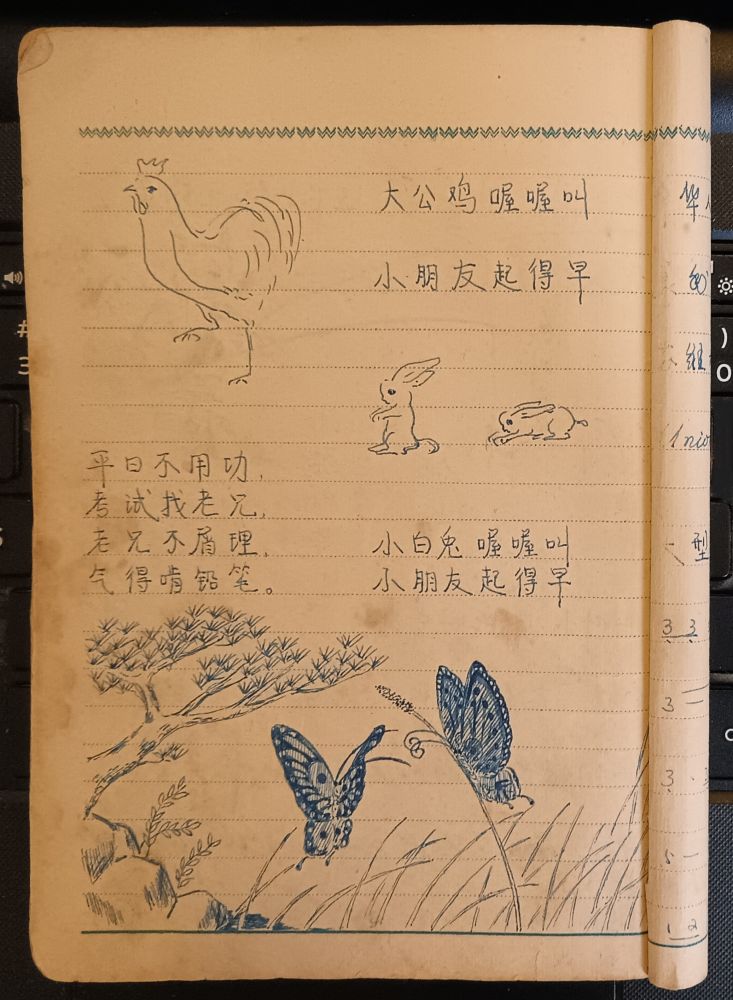 大公鸡喔喔叫
小朋友起得早
平日不用功,
考试找老兄,
老兄不屑理,
气得啃铅笔。
小白兔喔喔叫
小朋友起得早
华
维
型
3 3
3 —
3 ·
5 —
1 2
#
3
)
0